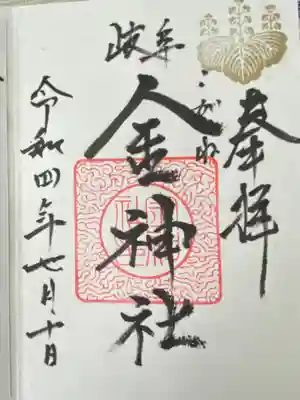 奉拝
岐阜
こがね
金神社
令和四年七月十日